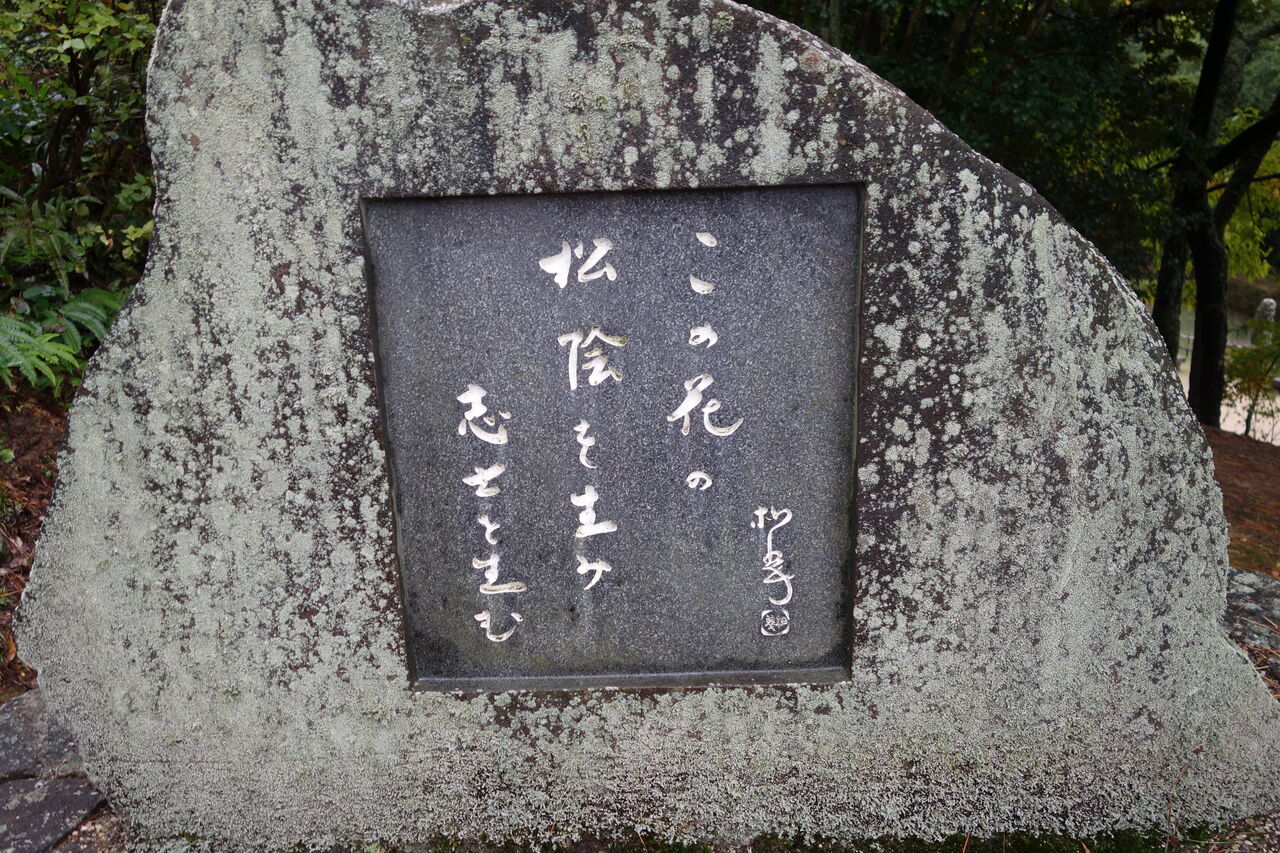 この花の
松陰を生み
志士を生む